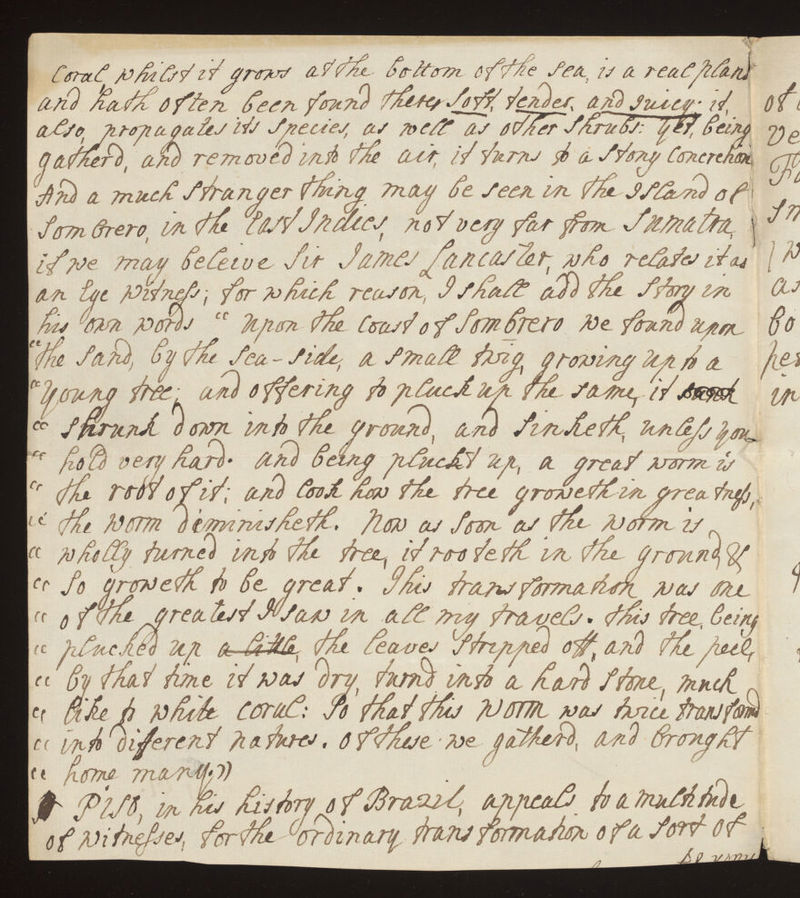 Coral whilst it grows at the bottom of the sea, is a real plant
and hath often been found there, soft, tender, and juicy: it
also, propagates its species, as well as other shrubs: yet, being
gatherd, and removed into the air, it turns to a stony concretion
And a much stranger thing may be seen in the Island of
Sombrero, in the East Indies, not very far from Sumatra,
if we may beleive Sir James Lancaster, who relates it as
an Eye witness; for which reason, I shall add the story in
his own words " Upon the coast of Sombrero we found upon
" the sand, by the sea-side, a small twig, growing up to a
" young tree; and offering to pluck up the same, it
" shrunk down into the ground, and sinketh, unless you
" hold very hard. and being pluckt up, a great worm is
" the root of it; and look how the tree groweth in greatness,
" the worm diminisheth. Now as soon as the worm is
" wholly turned into the tree, it rooteth in the ground, &
" so groweth to be great. This transformation was one
" of the greatest I saw in all my travels. This tree, being
" plucked up a little, the leaves stripped off, and the peel,
" by that time it was dry, turnd into a hard stone, much
" like to white coral: So that this worm was twice transformd
" into diferent natures. Of these we gatherd, and brought
" home many."
Piso, in his history of Brazil, appeals to a multitude
of witnesses, for the ordinary transformation of a sort of
of
Ve
as
bo
in